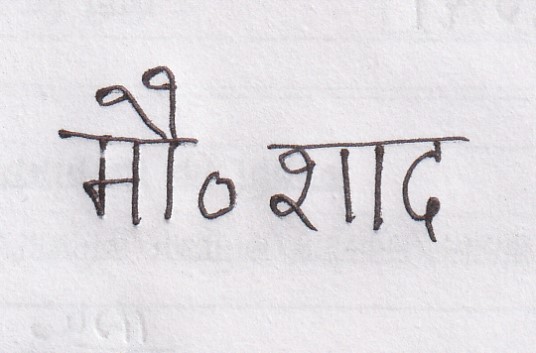 मौ० शाद